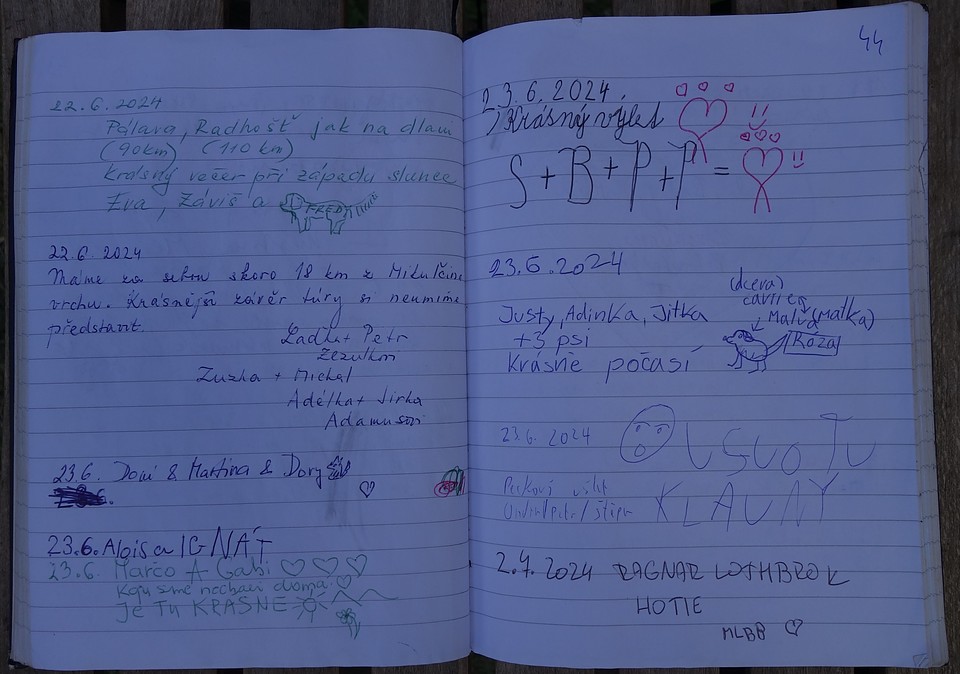 22.6.2024
Pálava, Radhošť jak na dlani
(90km) (110 km)
Krásný večer při západu slunce
Eva, Záviš a FRED
22.6.2024
Máme za sebou skoro 18 km z Mikulčina
vrchu. Krásnější závěr túry si neumíme
představit.
Laďka + Petr
Zuzka + Michal
Adélka + Jirka
Adamusovi
23.6. Domi & Martina & Dory
23.6. Alois a IGNÁT
23.6. Marco A Gabi
sme nechali doma
JE TU KRÁSNĚ
44
23.6.2024.
Krásný výlet
S + B + P + P =
23.6.2024
Justy, Adinka, Jitka
+3 psi
Krásné počasí
(dcera)
Malva (matka)
Róza
23.6.2024
KLAUNÝ
2.7.2024 RAGNAR LOTHBROK
HOTIE
MLBB